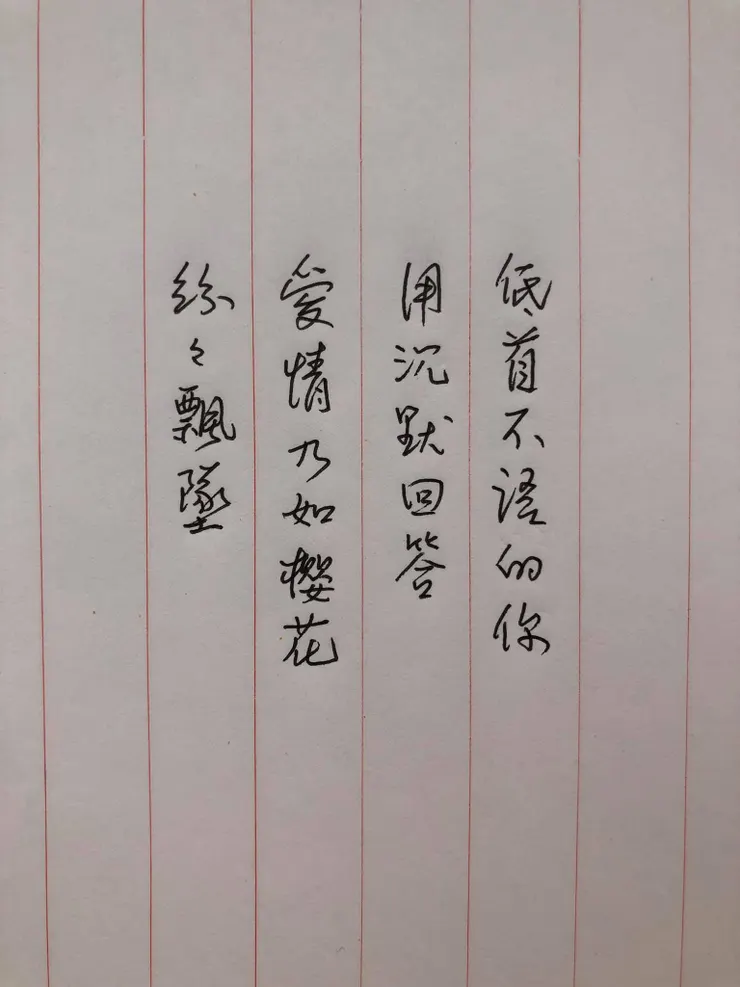 低首不语的你
用沉默回答
爱情乃如樱花
纷々飘坠